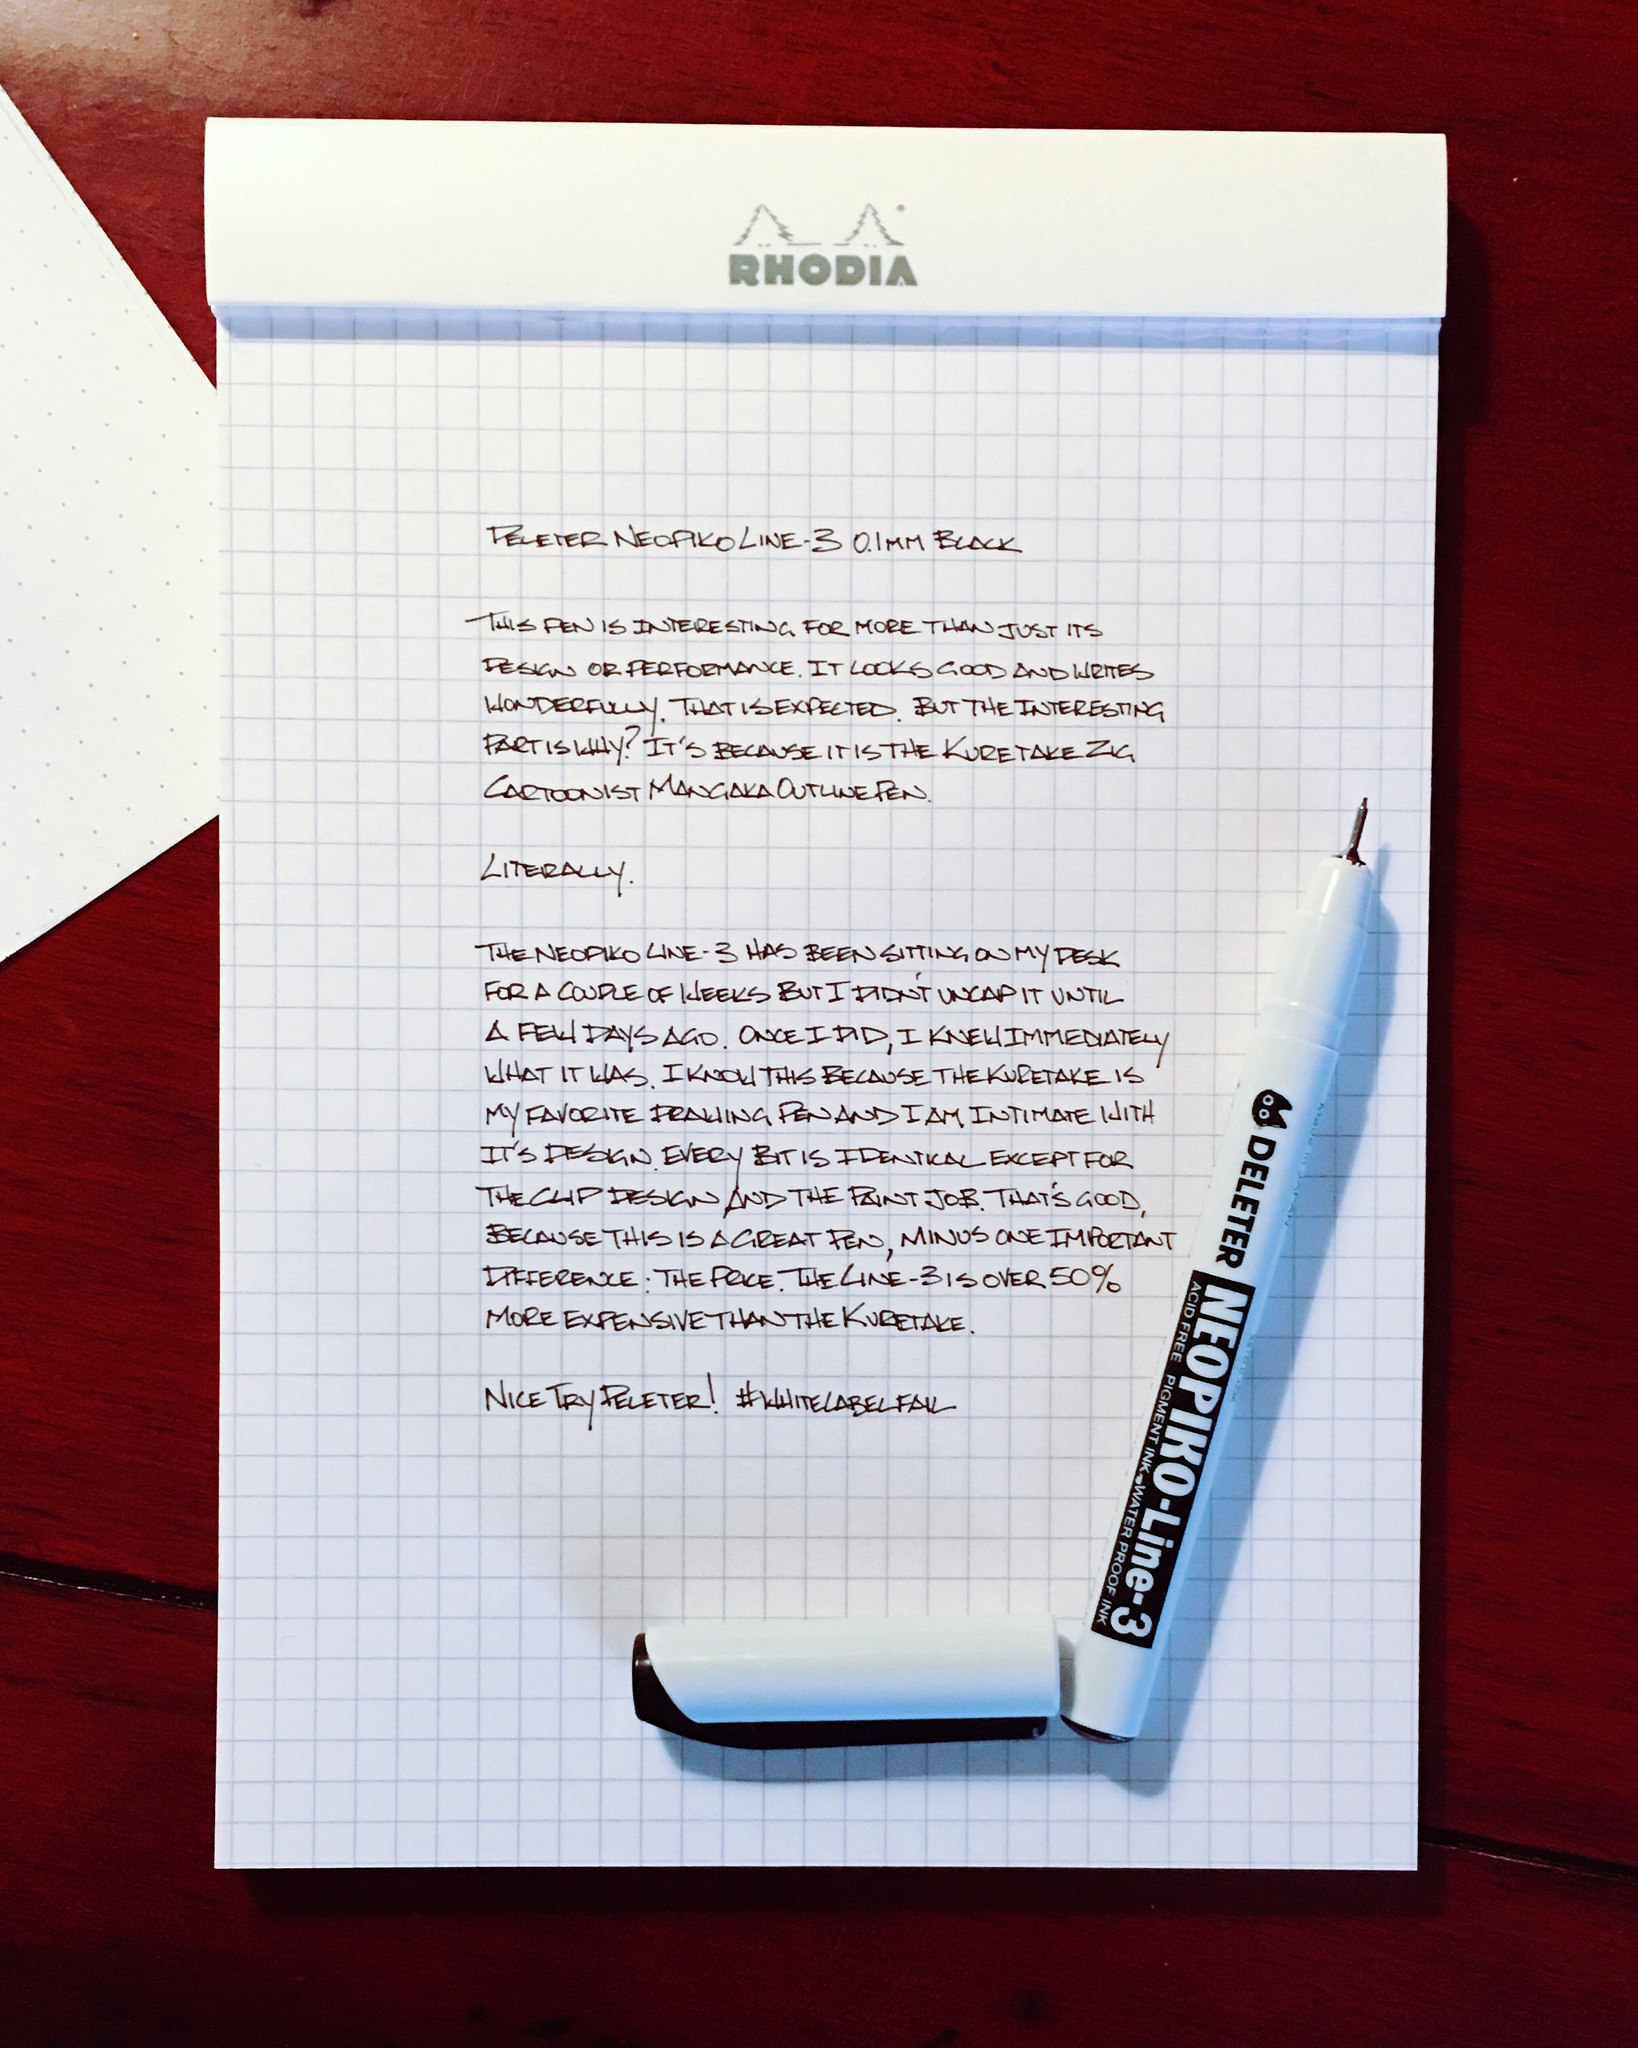 RHODIA
DELETER NEOPIKO LINE-3 0.1MM BLACK
THIS PEN IS INTERESTING FOR MORE THAN JUST ITS
DESIGN OR PERFORMANCE. IT LOOKS GOOD AND WRITES
WONDERFULLY. THAT IS EXPECTED. BUT THE INTERESTING
PART IS WHY? IT'S BECAUSE IT IS THE KURETAKE ZIG
CARTOONIST MANGAKA OUTLINE PEN.
LITERALLY.
THE NEOPIKO LINE-3 HAS BEEN SITTING ON MY DESK
FOR A COUPLE OF WEEKS BUT I DIDN'T UNCAP IT UNTIL
A FEW DAYS AGO. ONCE I DID, I KNEW IMMEDIATELY
WHAT IT WAS. I KNOW THIS BECAUSE THE KURETAKE IS
MY FAVORITE DRAWING PEN AND I AM INTIMATE WITH
IT'S DESIGN. EVERY BIT IS IDENTICAL EXCEPT FOR
THE CLIP DESIGN AND THE PAINT JOB. THAT'S GOOD,
BECAUSE THIS IS A GREAT PEN, MINUS ONE IMPORTANT
DIFFERENCE: THE PRICE. THE LINE-3 IS OVER 50%
MORE EXPENSIVE THAN THE KURETAKE.
NICE TRY DELETER! #WHITELABELFAIL
DELETER NEOPIKO-Line-3
ACID FREE PIGMENT INK-WATER PROOF INK